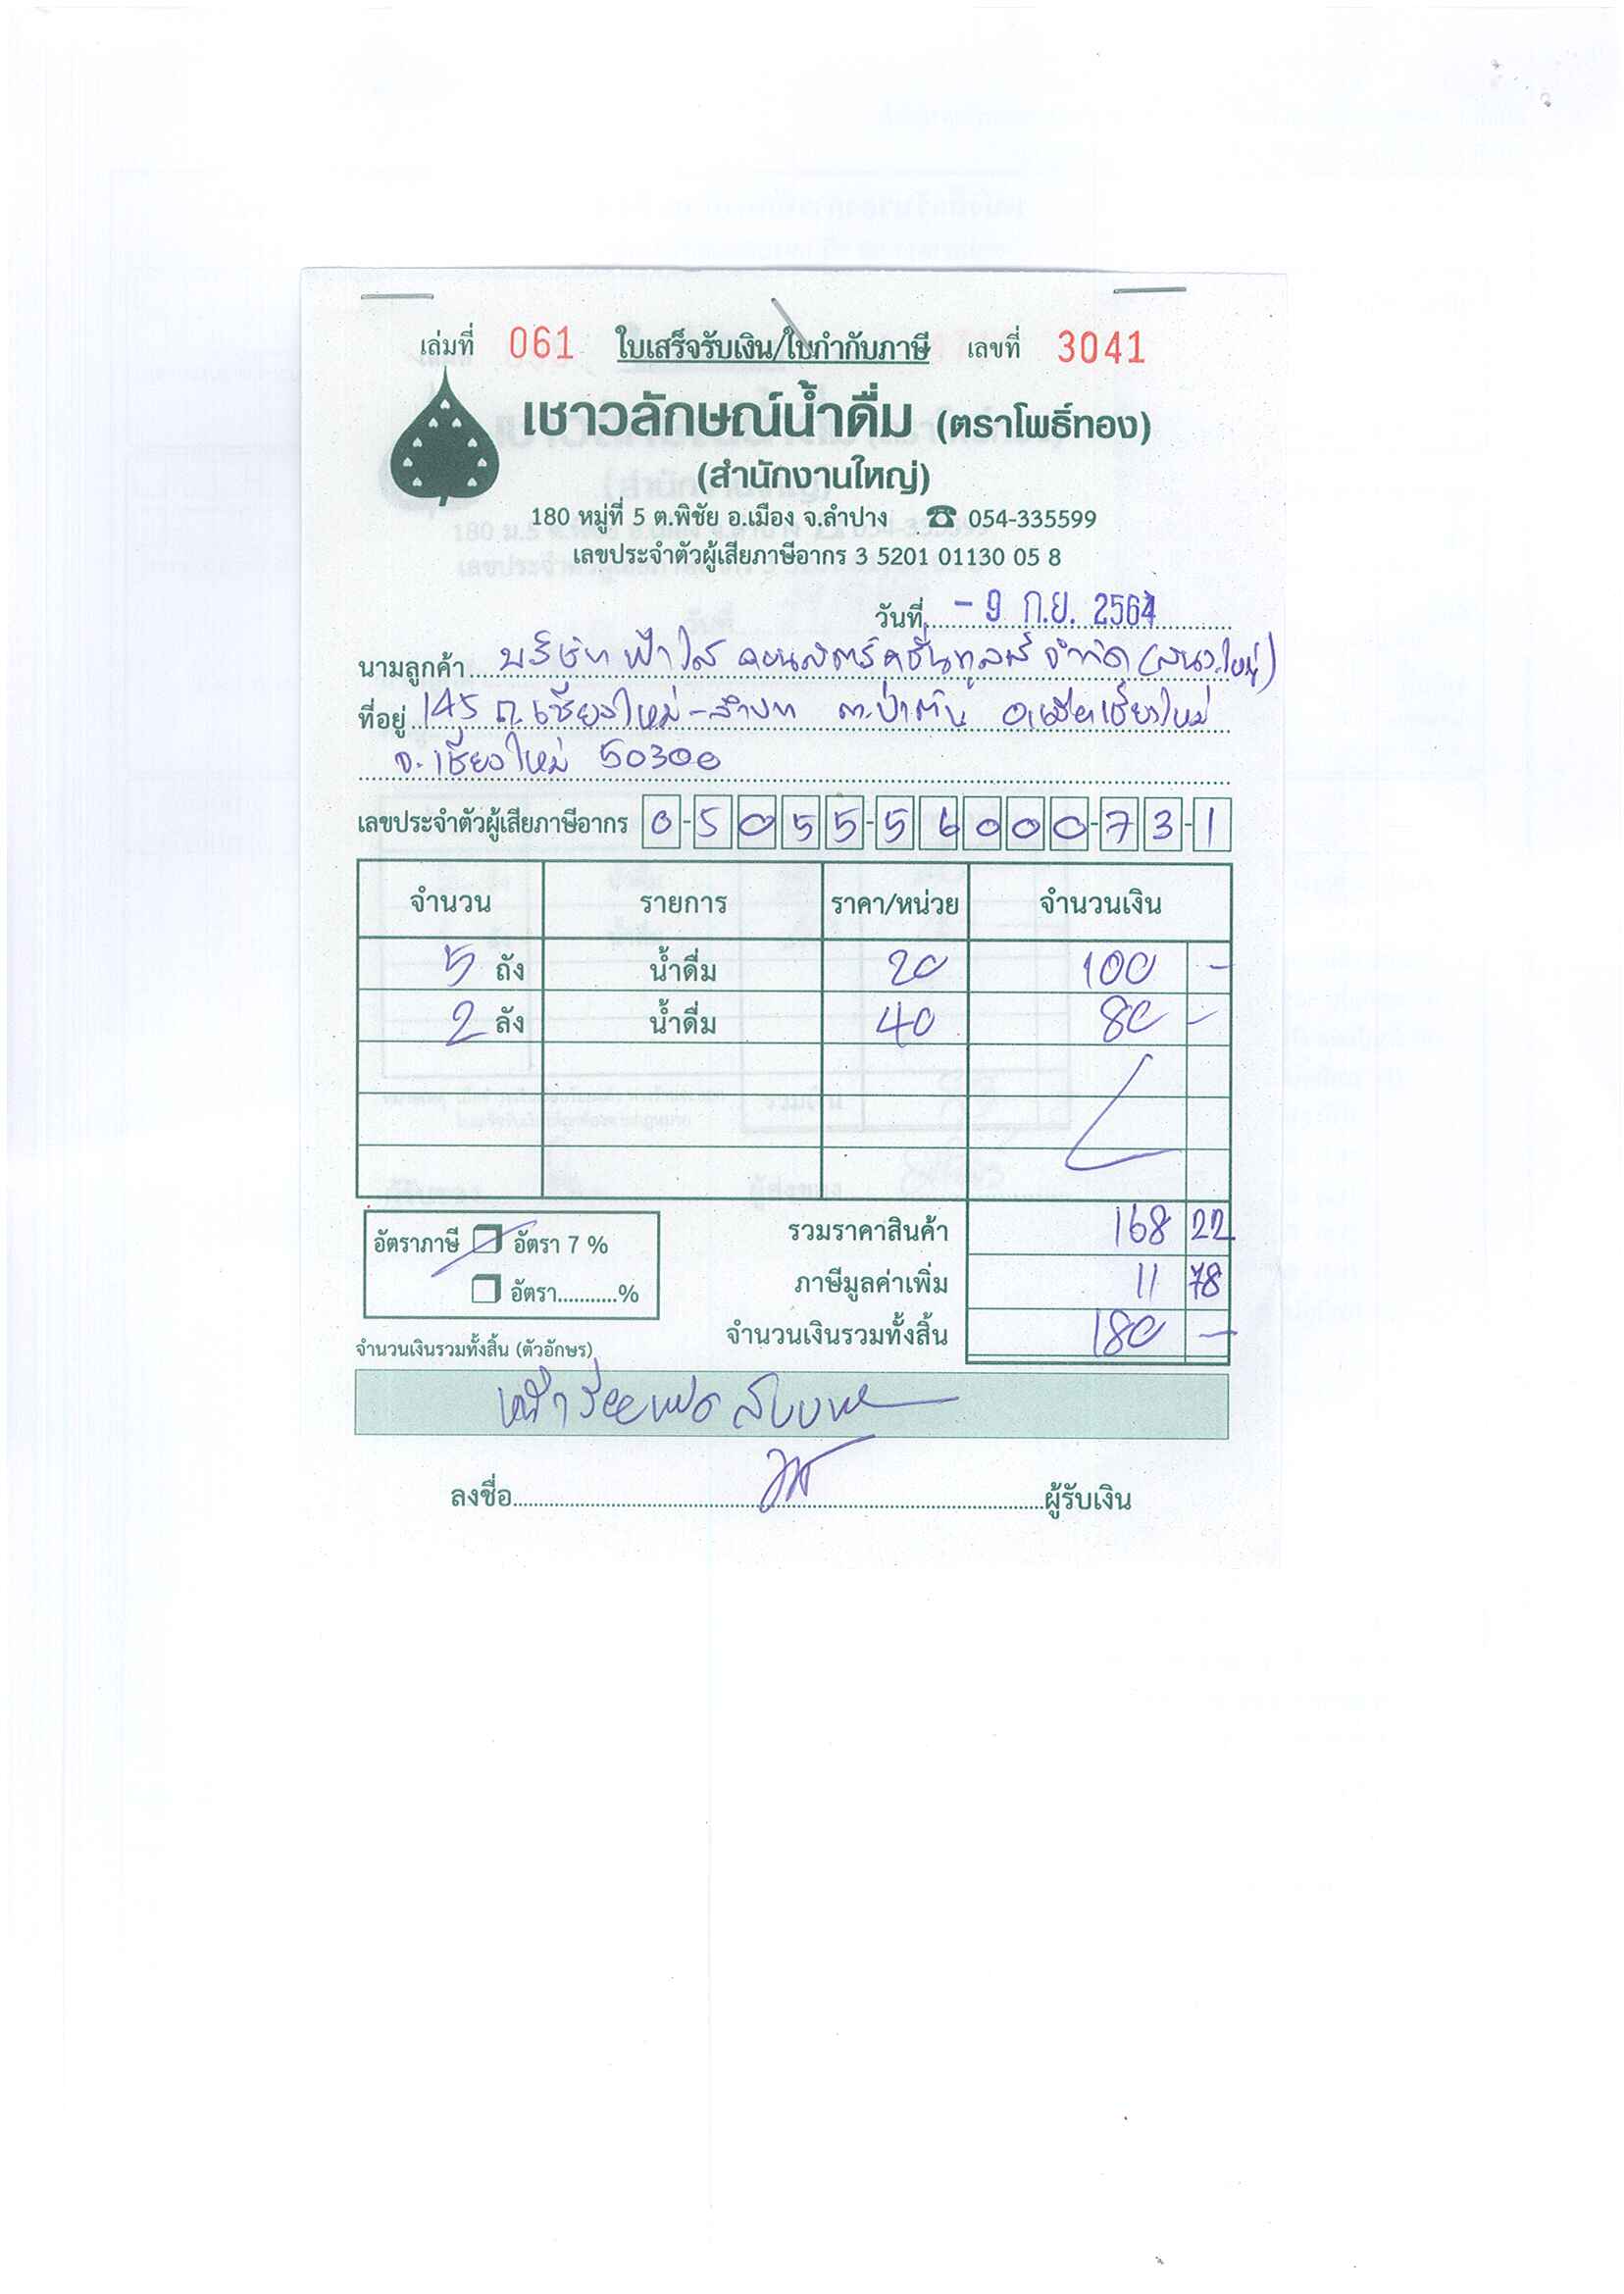 เล่มที่ 061 ใบเสร็จรับเงิน/ใบกำกับภาษี เลขที่ 3041
เชาวลักษณ์น้ำดื่ม (ตราโพธิ์ทอง)
(สำนักงานใหญ่)
180 หมู่ที่ 5 ต.พิชัย อ.เมือง จ.ลำปาง ☎ 054-335599
เลขประจำตัวผู้เสียภาษีอากร 3 5201 01130 05 8
วันที่ - 9 ก.ย. 2564
นามลูกค้า บริษัท ฟ้าใส คอนสตรัคชั่นทูลส์ จำกัด (สนง.ใหญ่)
ที่อยู่ 145 ถ.เชียงใหม่-ลำปาง ต.ป่าตัน อ.เมืองเชียงใหม่
จ.เชียงใหม่ 50300
เลขประจำตัวผู้เสียภาษีอากร 0-5055-56000-73-1
จำนวน รายการ ราคา/หน่วย จำนวนเงิน
5 ถัง น้ำดื่ม 20 100 -
2 ลัง น้ำดื่ม 40 80 -
อัตราภาษี อัตรา 7 % รวมราคาสินค้า 168 22
อัตรา...........% ภาษีมูลค่าเพิ่ม 11 78
จำนวนเงินรวมทั้งสิ้น 180 -
จำนวนเงินรวมทั้งสิ้น (ตัวอักษร)
หนึ่งร้อยแปดสิบบาท
ลงชื่อ ผู้รับเงิน